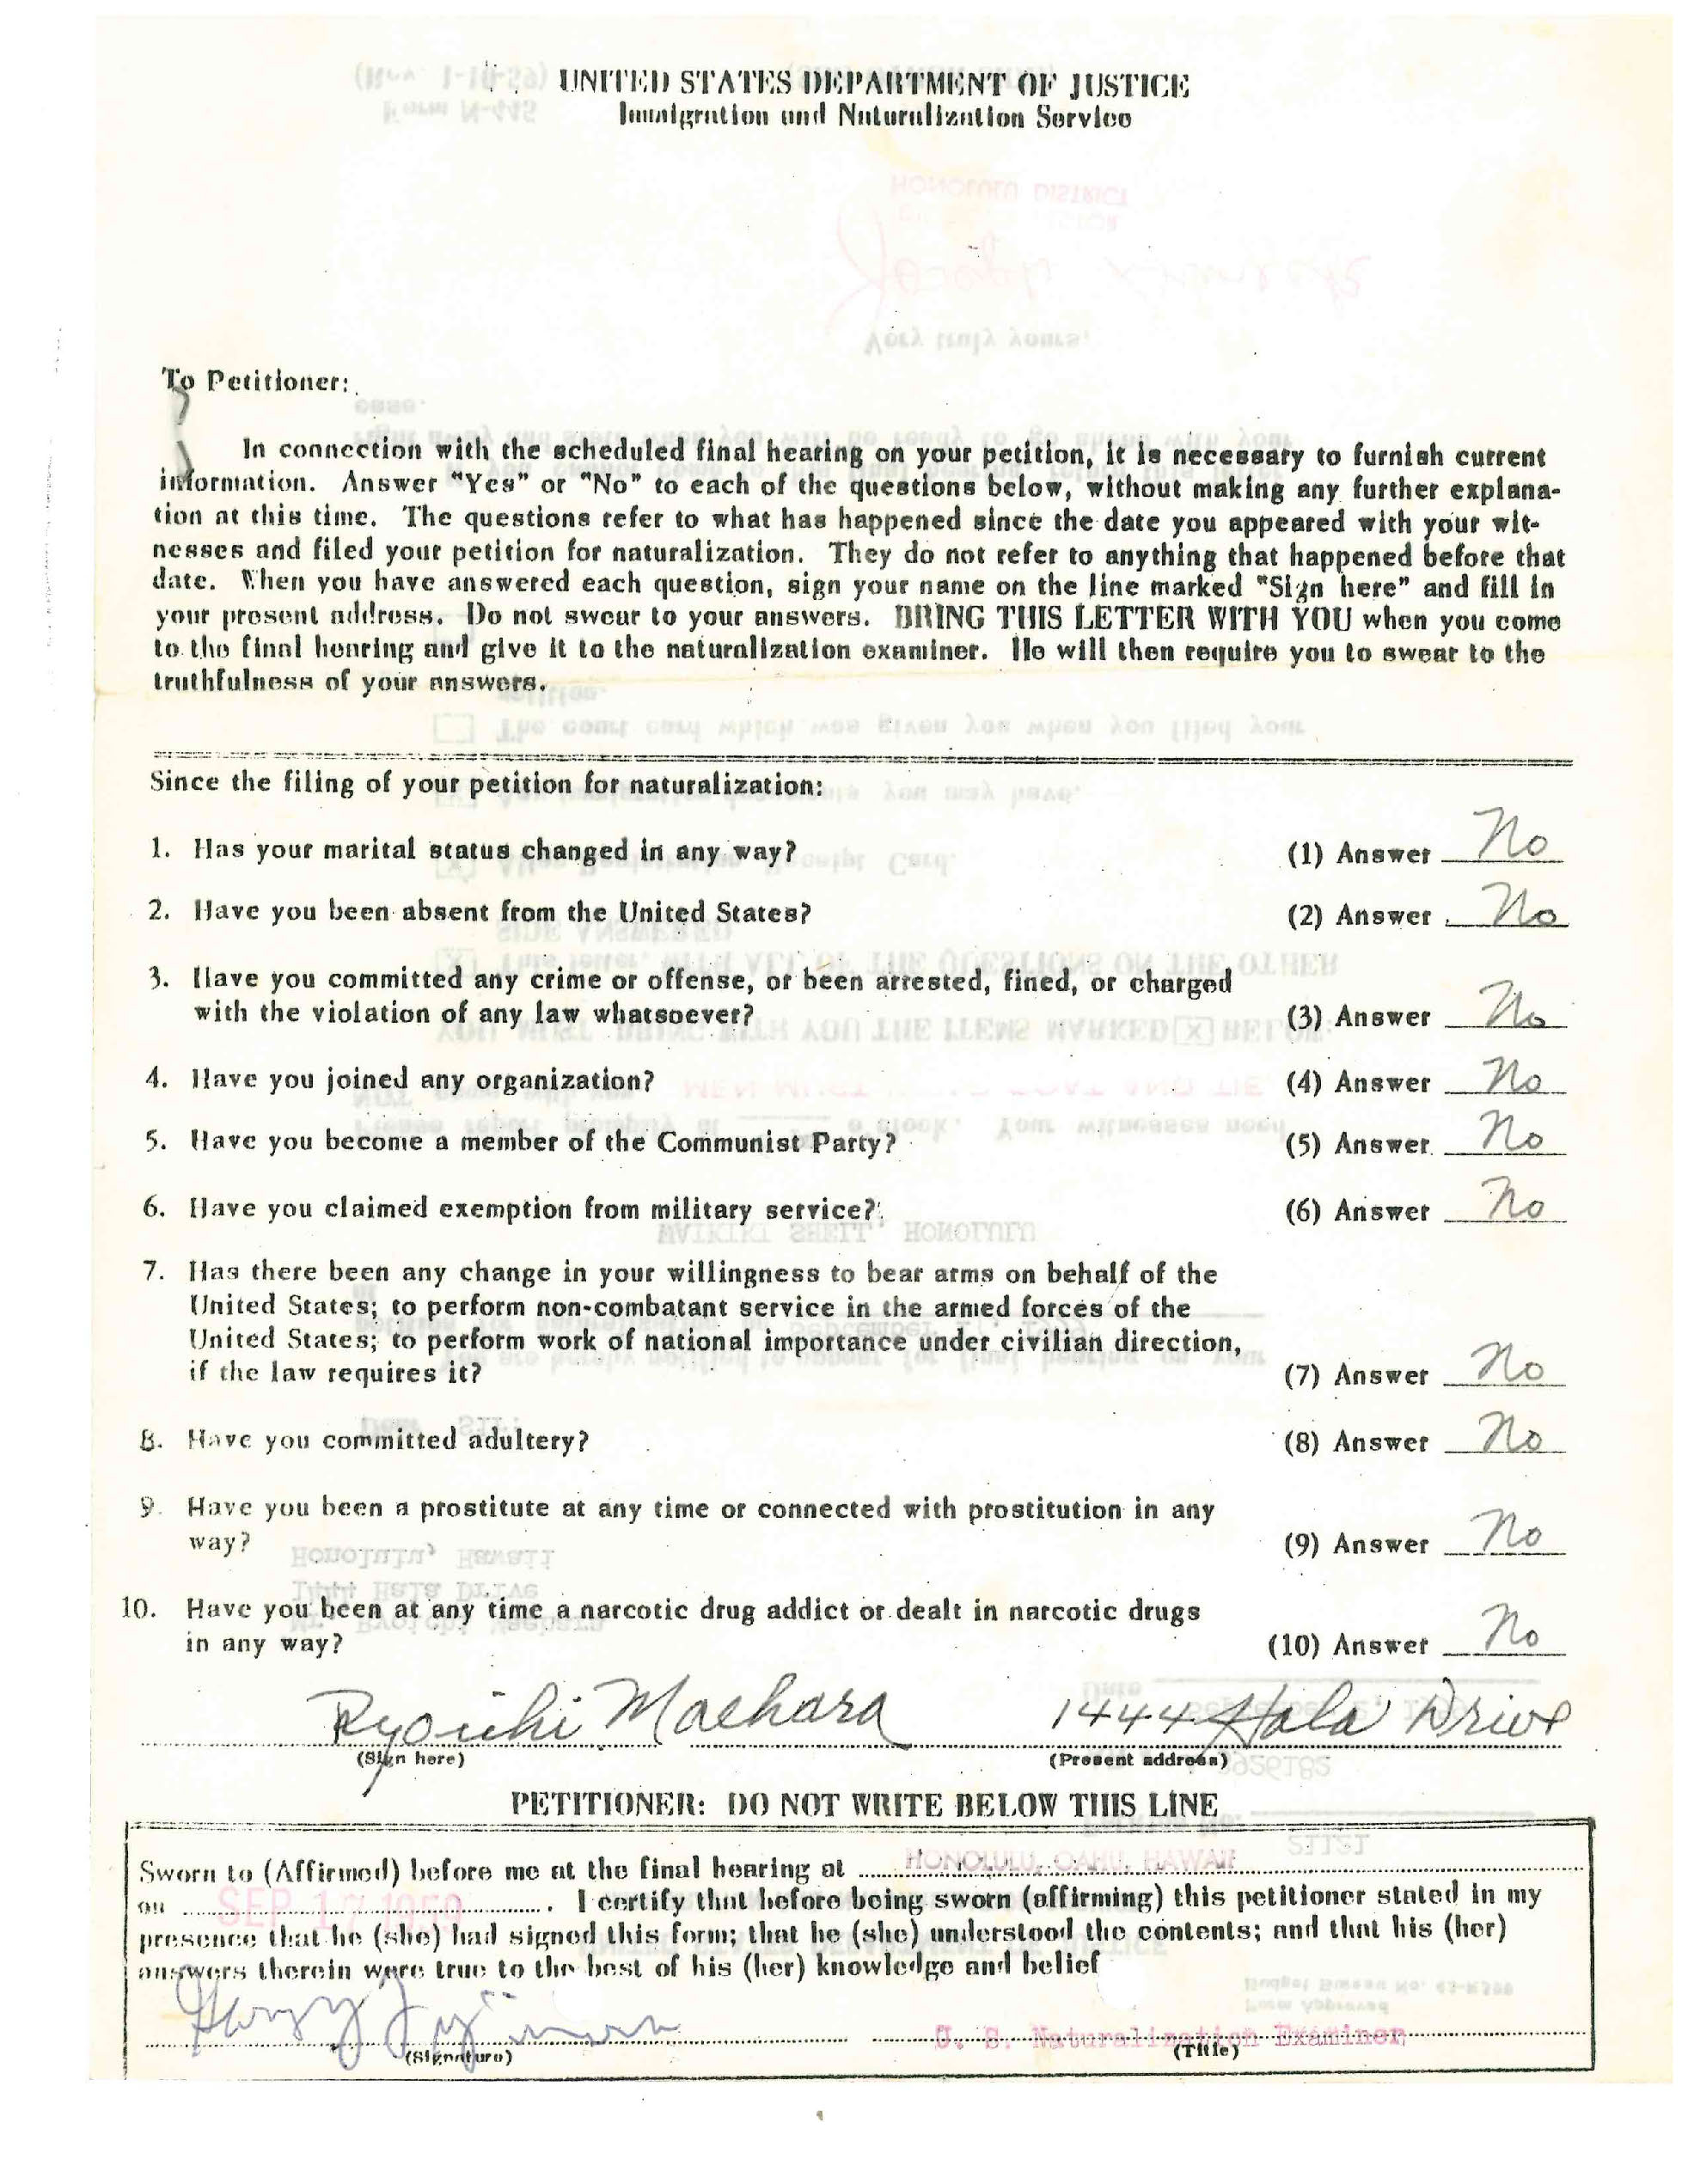 UNITED STATES DEPARTMENT OF JUSTICE
Immigration and Naturalization Service
To Petitioner:
In connection with the scheduled final hearing on your petition, it is necessary to furnish current
information. Answer "Yes" or "No" to each of the questions below, without making any further explana-
tion at this time. The questions refer to what has happened since the date you appeared with your wit-
nesses and filed your petition for naturalization. They do not refer to anything that happened before that
date. When you have answered each question, sign your name on the line marked "Sign here" and fill in
your present address. Do not swear to your answers. BRING THIS LETTER WITH YOU when you come
to the final hearing and give it to the naturalization examiner. He will then require you to swear to the
truthfulness of your answers.
Since the filing of your petition for naturalization:
1. Has your marital status changed in any way? (1) Answer No
2. Have you been absent from the United States? (2) Answer No
3. Have you committed any crime or offense, or been arrested, fined, or charged
with the violation of any law whatsoever? (3) Answer No
4. Have you joined any organization? (4) Answer No
5. Have you become a member of the Communist Party? (5) Answer No
6. Have you claimed exemption from military service? (6) Answer No
7. Has there been any change in your willingness to bear arms on behalf of the
United States; to perform non-combatant service in the armed forces of the
United States; to perform work of national importance under civilian direction,
if the law requires it? (7) Answer No
8. Have you committed adultery? (8) Answer No
9. Have you been a prostitute at any time or connected with prostitution in any
way? (9) Answer No
10. Have you been at any time a narcotic drug addict or dealt in narcotic drugs
in any way? (10) Answer No
Ryoichi Maehara 1444 Hala Drive
(Sign here) (Present address)
PETITIONER: DO NOT WRITE BELOW THIS LINE
Sworn to (Affirmed) before me at the final hearing at HONOLULU, OAHU, HAWAII
on SEP 17 1959. I certify that before being sworn (affirming) this petitioner stated in my
presence that he (she) had signed this form; that he (she) understood the contents; and that his (her)
answers therein were true to the best of his (her) knowledge and belief
U. S. Naturalization Examiner
(Signature) (Title)